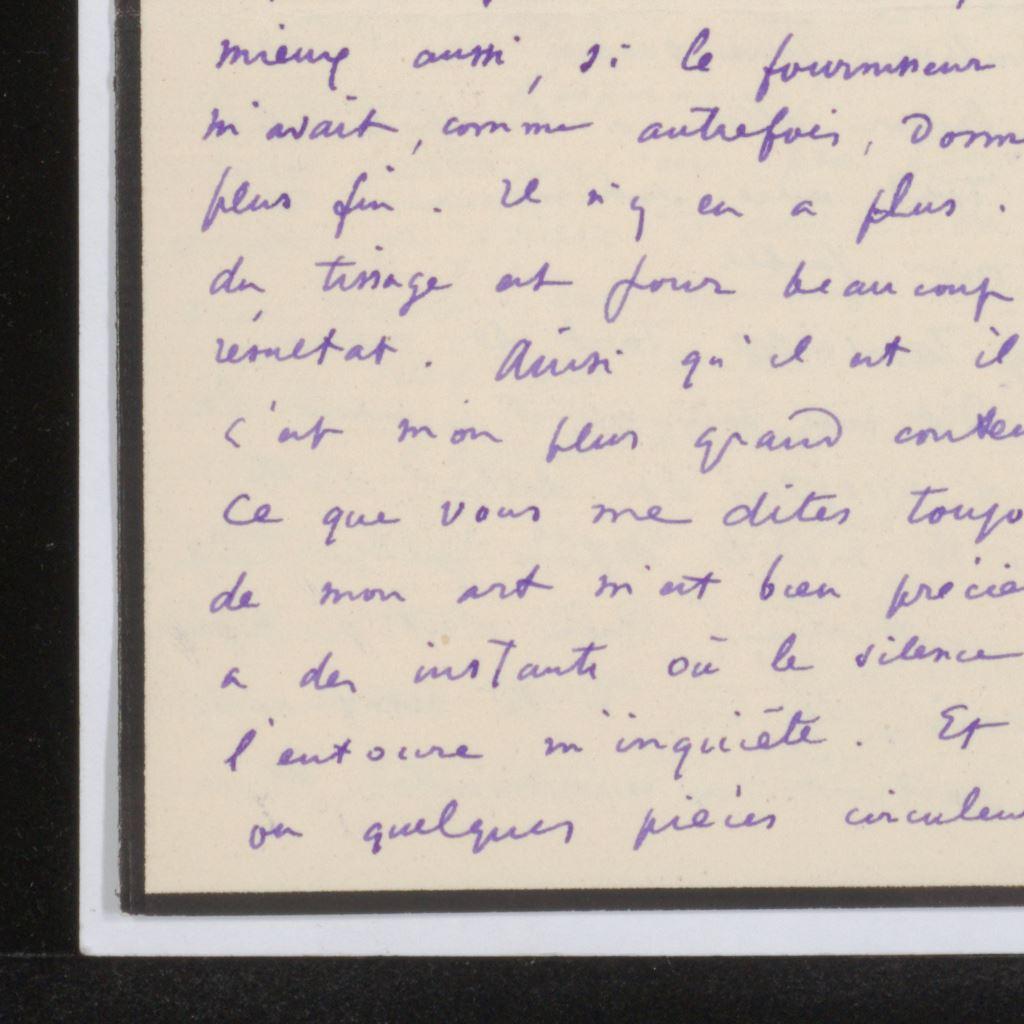 mieux aussi, si le fournisseur
m'avait, comme autrefois, donn
plus fin. Il n'y en a plus.
du tissage est pour beaucoup
résultat. Ainsi qu'il est il
c'est mon plus grand conten
Ce que vous me dites toujo
de mon art m'est bien précie
a des instants où le silence
l'entoure m'inquiète. Et
où quelques pièces circulen